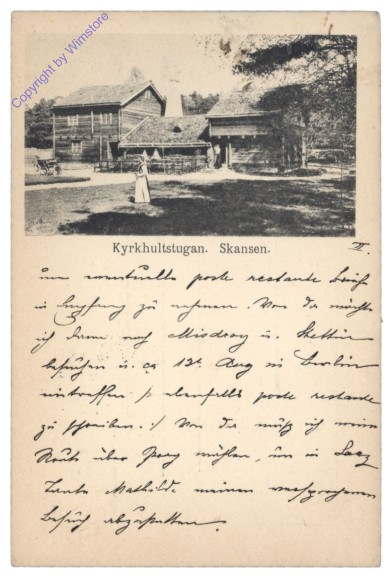 Copyright by Wimstore
Kyrkhultstugan. Skansen.
II.
um eventuelle poste restante Briefe
in Empfang zu nehmen. Von da möchte
ich dann nach Misdroy u. Stettin
besuchen u. ca 12t Aug in Berlin
eintreffen /: ebenfalls poste restante
zu schreiben. :/ Von da muß ich meine
Route über Prag wählen, um in Saaz
Tante Mathilde meinen versprochenen
Besuch abzustatten.